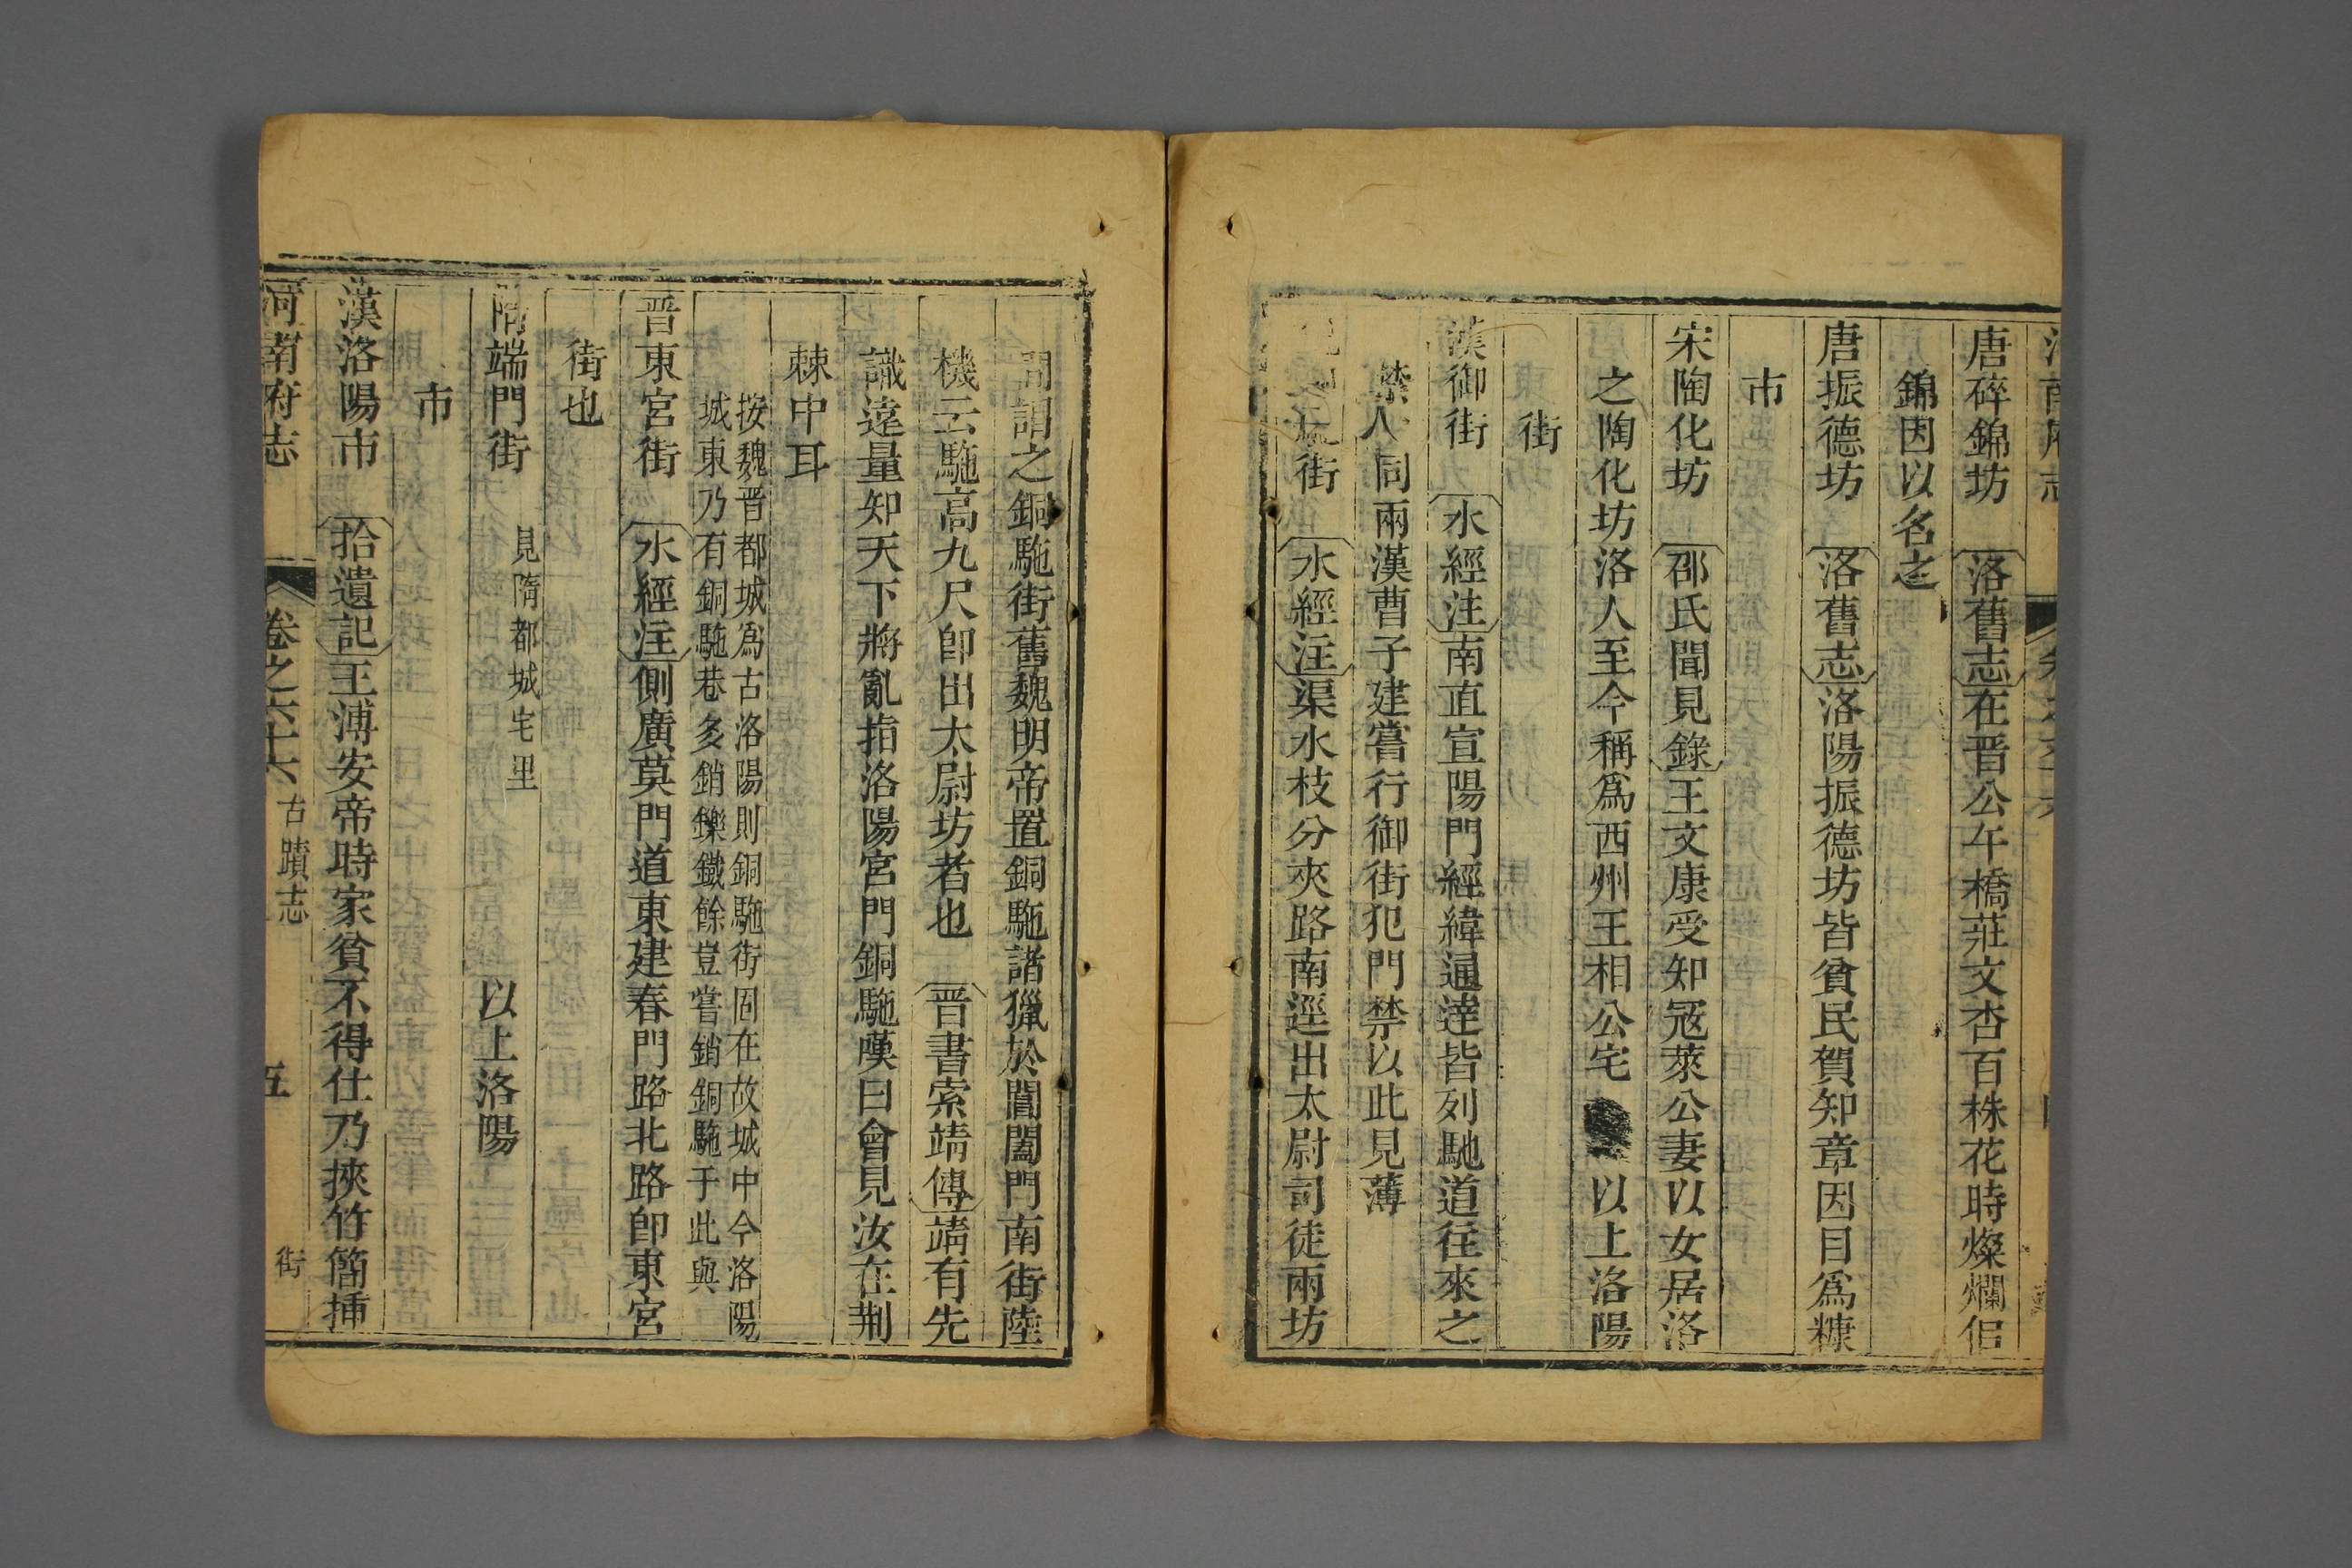 唐碎錦坊　洛舊志在晋公午橋莊文杏百株花時燦爛侣
錦因以名之
唐振德坊　洛舊志洛陽振德坊皆貧民賀知章因目爲糠
市
宋陶化坊　邵氏聞見錄王文康受知冦萊公妻以女居洛
之陶化坊洛人至今稱爲西州王相公宅　以上洛陽
街
漢御街　水經注南直宣陽門經緯通逹皆列馳道往來之
禁人同兩漢曹子建嘗行御街犯門禁以此見薄
街　水經注渠水枝分夾路南逕出太尉司徒兩坊
間謂之銅駞街舊魏明帝置銅駞諸獵於閶闔門南街陸
機云駞高九尺卽出太尉坊者也　晋書索靖傳靖有先
識遠量知天下將亂指洛陽宮門銅駞嘆曰會見汝在荆
棘中耳
按魏晋都城爲古洛陽則銅駞街固在故城中今洛陽
城東乃有銅駞巷多銷鑠鐵餘豈嘗銷銅駞于此與
晋東宮街　水經注側廣莫門道東建春門路北路卽東宮
街也
隋端門街　見隋都城宅里　以上洛陽
市
漢洛陽市　拾遺記王溥安帝時家貧不得仕乃挾竹簡揷
河南府志　卷之六十六　古蹟志　街　五